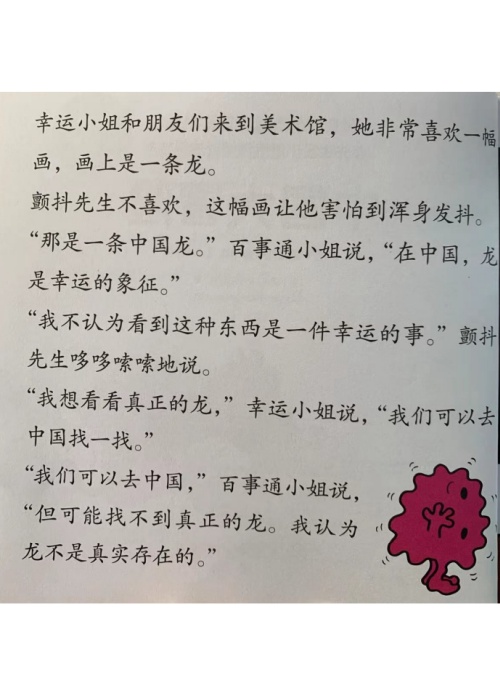 幸运小姐和朋友们来到美术馆，她非常喜欢一幅
画，画上是一条龙。
颤抖先生不喜欢，这幅画让他害怕到浑身发抖。
“那是一条中国龙。”百事通小姐说，“在中国，龙
是幸运的象征。”
“我不认为看到这种东西是一件幸运的事。”颤抖
先生哆哆嗦嗦地说。
“我想看看真正的龙，”幸运小姐说，“我们可以去
中国找一找。”
“我们可以去中国，”百事通小姐说，
“但可能找不到真正的龙。我认为
龙不是真实存在的。”